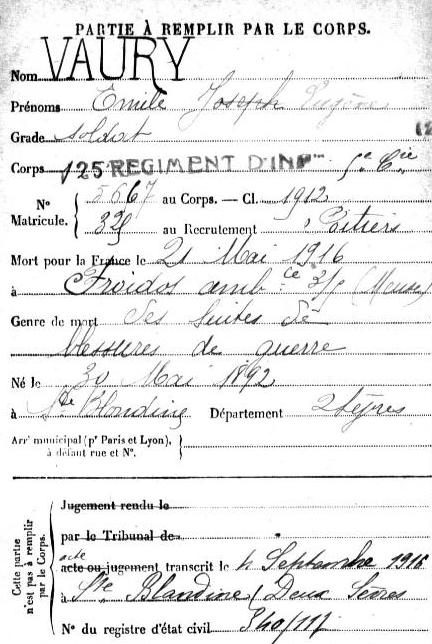 PARTIE À REMPLIR PAR LE CORPS.
Nom VAURY
Prénoms Emile Joseph Eugène
Grade soldat
Corps 125 REGIMENT D'INFie 5e Cie
N° Matricule. { 5667 au Corps. — Cl. 1912
au Recrutement Poitiers
Mort pour la France le 21 Mai 1916
à Froidos amb.ce 3/5 (Meuse)
Genre de mort Des suites de
blessures de guerre
Né le 30 Mai 1892
à Ste Blandine Département 2 Sèvres
Arr' municipal (p' Paris et Lyon), à défaut rue et N°. }
Cette partie n'est pas à remplir par le Corps.
Jugement rendu le
par le Tribunal de
acte
acte ou jugement transcrit le 4 Septembre 1916
à Ste Blandine (Deux Sèvres
N° du registre d'état civil 540/117